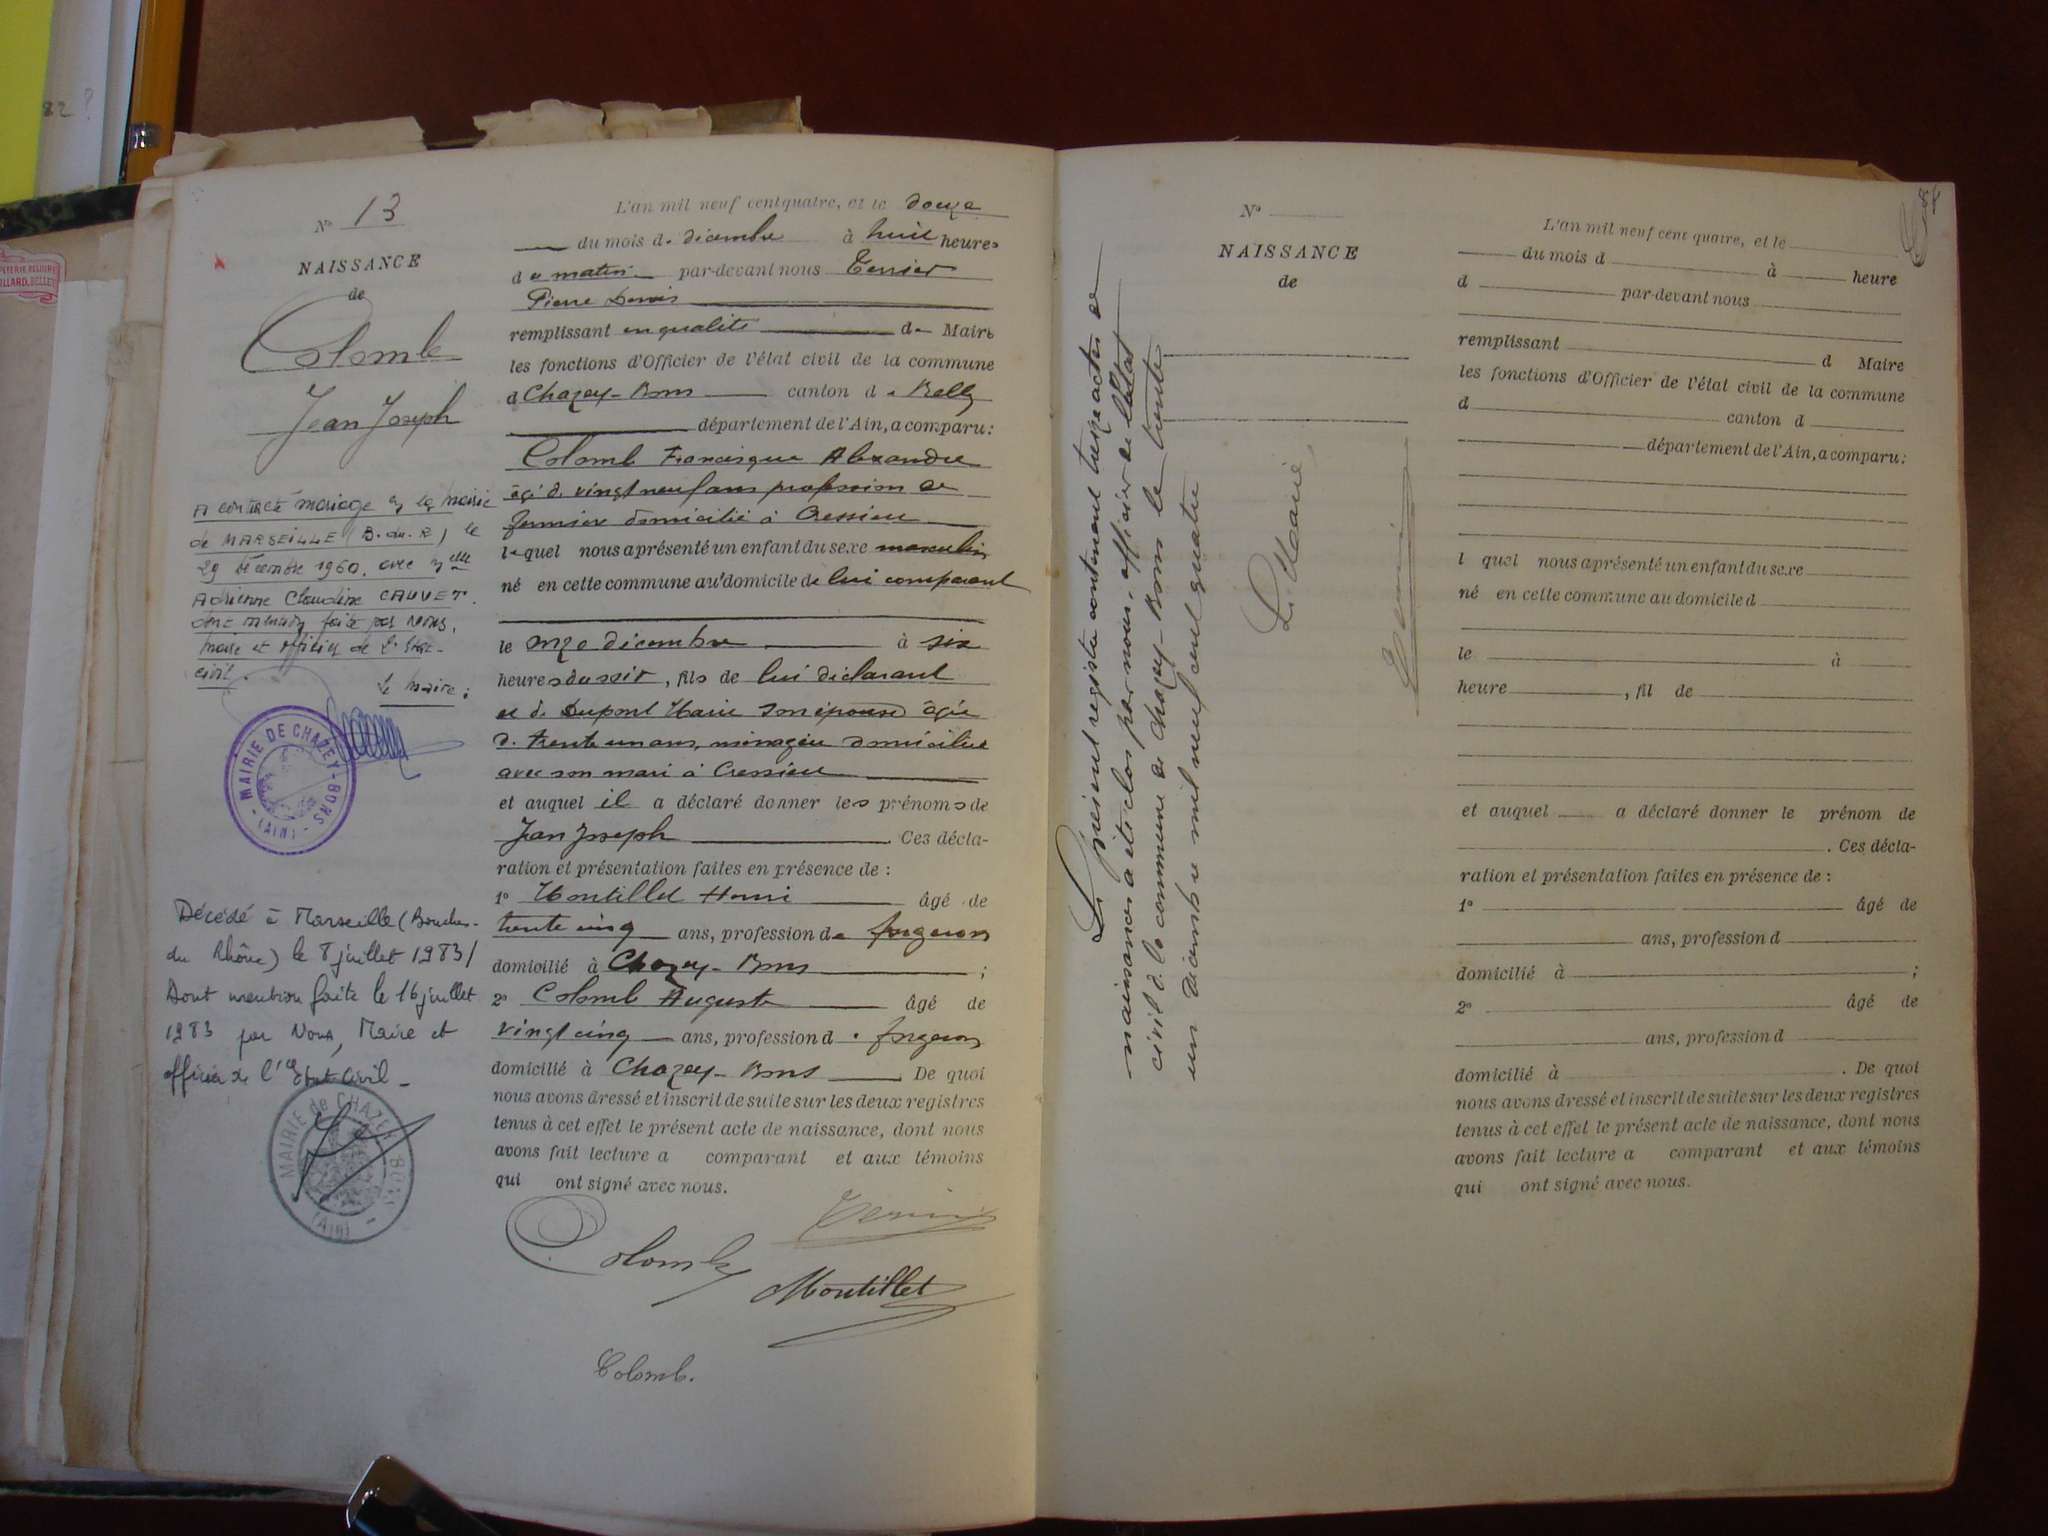 82 ?
PAPETERIE RELIURE
ILLARD, BELLEY
Nº 13
NAISSANCE
de
Colomb
Jean Joseph
A contracté mariage en la mairie
de MARSEILLE (B. du. R) le
29 décembre 1960. avec Mlle
Adrienne Claudine CAUVET.
dont mention faite par Nous,
Maire et officier de l'Etat-
civil.
Le Maire :
MAIRIE DE CHAZEY-BONS
- (AIN) -
Décédé à Marseille (Bouches-
du Rhône) le 8 juillet 1983/
Dont mention faite le 16 juillet
1983 par Nous, Maire et
officier de l'Etat Civil -
MAIRIE de CHAZEY BONS
(AIN)
L'an mil neuf cent quatre, et le douze
du mois de décembre à huit heures
du matin par-devant nous Terrier
Pierre Denis
remplissant en qualité de Maire
les fonctions d'Officier de l'état civil de la commune
d Chazey-Bons canton de Belley
département de l'Ain, a comparu :
Colomb Francisque Alexandre
âgé de vingt neuf ans profession de
fermier domicilié à Cressieu
lequel nous a présenté un enfant du sexe masculin
né en cette commune au domicile de lui comparant
le onze décembre à six
heures du soir, fils de lui déclarant
et de Dupont Marie son épouse âgée
de trente un ans, ménagère domiciliée
avec son mari à Cressieu
et auquel il a déclaré donner les prénoms de
Jean Joseph . Ces décla-
ration et présentation faites en présence de :
1º Montillet Henri âgé de
trente cinq ans, profession de forgeron
domicilié à Chazey-Bons ;
2º Colomb Auguste âgé de
vingt cinq ans, profession d. forgeron
domicilié à Chazey-Bons De quoi
nous avons dressé et inscrit de suite sur les deux registres
tenus à cet effet le présent acte de naissance, dont nous
avons fait lecture a comparant et aux témoins
qui ont signé avec nous.
Colomb
Montillet
Colomb.
Nº
NAISSANCE
de
Le présent registre contenant treize actes de
naissances a été clos par nous, officier de l'état
civil de la commune de Chazey-Bons le trente
un décembre mil neuf cent quatre
Le Maire,
L'an mil neuf cent quatre, et le
du mois d à heure
d par-devant nous
remplissant d Maire
les fonctions d'Officier de l'état civil de la commune
d canton d
département de l'Ain, a comparu :
l quel nous a présenté un enfant du sexe
né en cette commune au domicile d
le à
heure , fil de
et auquel a déclaré donner le prénom de
. Ces décla-
ration et présentation faites en présence de :
1º âgé de
ans, profession d
domicilié à ;
2º âgé de
ans, profession d
domicilié à . De quoi
nous avons dressé et inscrit de suite sur les deux registres
tenus à cet effet le présent acte de naissance, dont nous
avons fait lecture a comparant et aux témoins
qui ont signé avec nous.